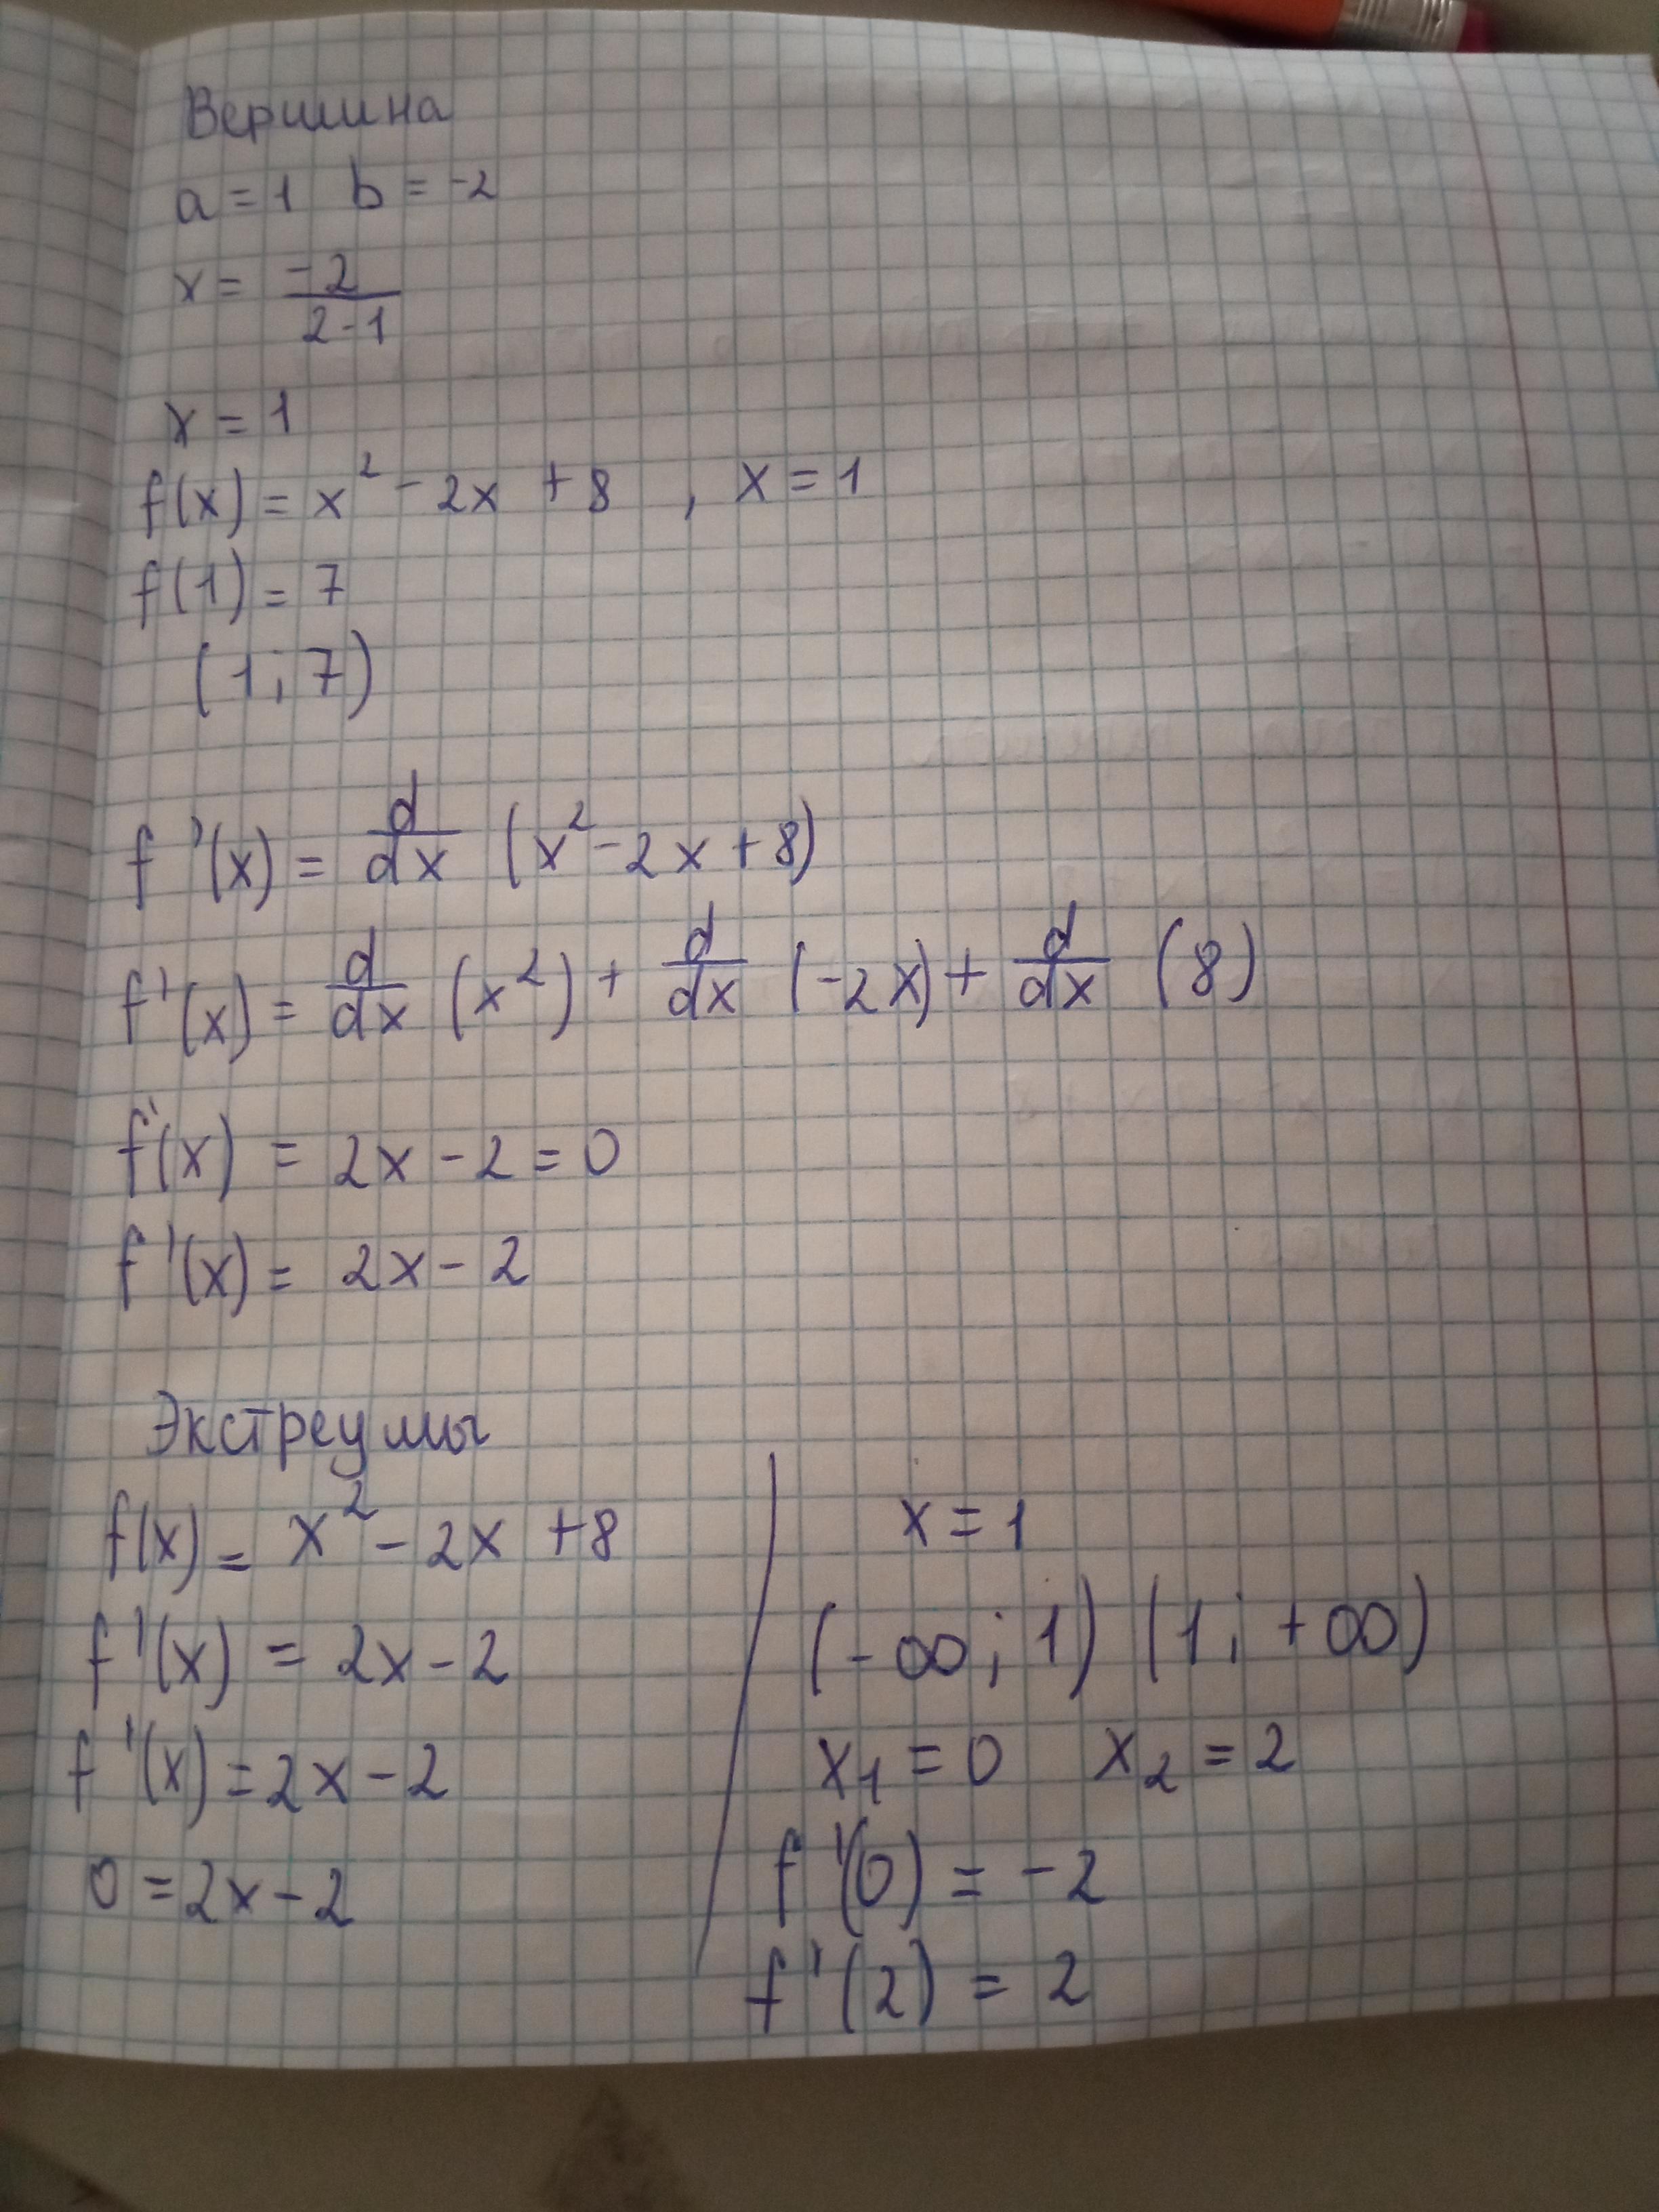 Вершина
a = 1 b = -2
x = -2 / 2-1
x = 1
f(x) = x² - 2x + 8 , x = 1
f(1) = 7
(1; 7)
f '(x) = d/dx (x² - 2x + 8)
f '(x) = d/dx (x²) + d/dx (-2x) + d/dx (8)
f '(x) = 2x - 2 = 0
f '(x) = 2x - 2
Экстреумы
f(x) = x² - 2x + 8
f '(x) = 2x - 2
f '(x) = 2x - 2
0 = 2x - 2
x = 1
(-∞; 1) (1; +∞)
x₁ = 0 x₂ = 2
f '(0) = -2
f '(2) = 2